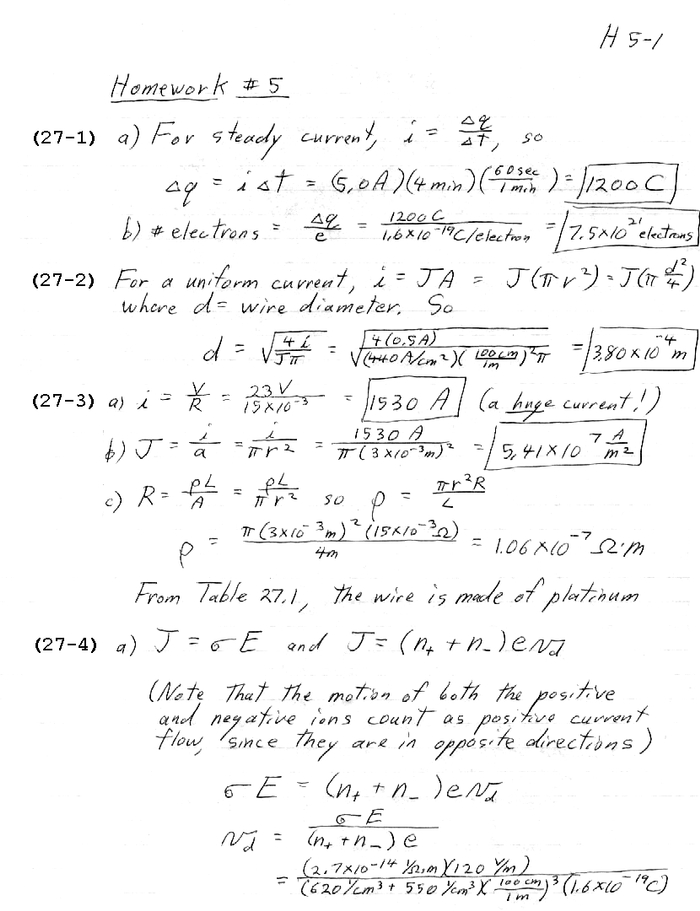 H 5-1
Homework # 5
(27-1) a) For steady current, i = Δq/Δt, so
Δq = iΔt = (5,0A)(4 min)(60sec/1 min) = 1200 C
b) # electrons = Δq/e = 1200 C/1.6×10⁻¹⁹C/electron = 7.5×10²¹ electrons
(27-2) For a uniform current, i = JA = J(πr²) = J(π d²/4)
where d = wire diameter. So
d = √(4i/Jπ) = √(4(0.5A)/(440 A/cm²)(100cm/1m)²π) = 3.80×10⁻⁴ m
(27-3) a) i = V/R = 23V/15×10⁻³ = 1530 A (a huge current!)
b) J = i/a = i/πr² = 1530 A/π(3×10⁻³m)² = 5,41×10⁷ A/m²
c) R = ρL/A = ρL/πr² so ρ = πr²R/L
ρ = π(3×10⁻³m)²(15×10⁻³Ω)/4m = 1.06×10⁻⁷ Ω·m
From Table 27.1, the wire is made of platinum
(27-4) a) J = σE and J = (n₊ + n₋)ev_d
(Note that the motion of both the positive
and negative ions count as positive current
flow, since they are in opposite directions)
σE = (n₊ + n₋)ev_d
v_d = σE/(n₊ + n₋)e
= (2.7×10⁻¹⁴ 1/Ω·m)(120 V/m)/(620 1/cm³ + 550 1/cm³)(100 cm/1m)³(1.6×10⁻¹⁹C)